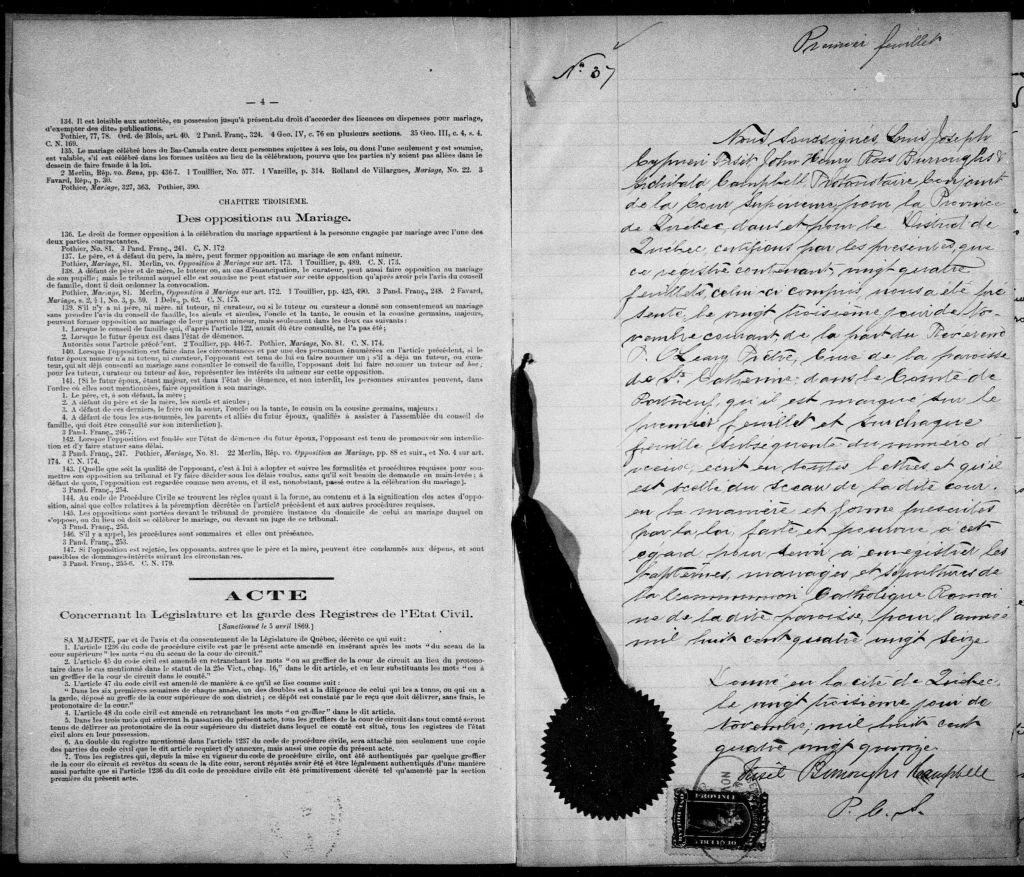 — 4 —
134. Il est loisible aux autorités, en possession jusqu'à présent du droit d'accorder des licences ou dispenses pour mariage,
d'exempter des dites publications.
Pothier, 77, 78. Ord. de Blois, art. 40. 2 Pand. Franç., 324. 4 Geo. IV, c. 76 en plusieurs sections. 35 Geo. III, c. 4, s. 4.
C. N. 169.
135. Le mariage célébré hors du Bas-Canada entre deux personnes sujettes à ses lois, ou dont l'une seulement y est soumise,
est valable, s'il est célébré dans les formes usitées au lieu de la célébration, pourvu que les parties n'y soient pas allées dans le
dessein de faire fraude à la loi.
2 Merlin, Rép. vo. Bans, pp. 436-7. 1 Touillier, No. 577. 1 Vazeille, p. 314. Rolland de Villargues, Mariage, No. 22. 3
Favard, Rép., p. 30.
Pothier, Mariage, 327, 363. Pothier, 390.
CHAPITRE TROISIÈME.
Des oppositions au Mariage.
136. Le droit de former opposition à la célébration du mariage appartient à la personne engagée par mariage avec l'une des
deux parties contractantes.
Pothier, No. 81. 3 Pand. Franç., 241. C. N. 172
137. Le père, et à défaut du père, la mère, peut former opposition au mariage de son enfant mineur.
Pothier, Mariage, 81. Merlin, vo. Opposition à Mariage sur art. 173. 1 Touillier, p. 489. C. N. 173.
138. A défaut de père et de mère, le tuteur ou, au cas d'émancipation, le curateur, peut aussi faire opposition au mariage
de son pupille; mais le tribunal auquel elle est soumise ne peut statuer sur cette opposition qu'après avoir pris l'avis du conseil
de famille, dont il doit ordonner la convocation.
Pothier, Mariage, 81. Merlin, Opposition à Mariage sur art. 172. 1 Touillier, pp. 425, 490. 3 Pand. Franç., 248. 2 Favard,
Mariage, s. 2, § 1, No. 3, p. 59. 1 Delv., p. 62. C. N. 175.
139. S'il n'y a ni père, ni mère, ni tuteur, ni curateur, ou si le tuteur ou curateur a donné son consentement au mariage
sans prendre l'avis du conseil de famille, les aïeuls et aïeules, l'oncle et la tante, le cousin et la cousine germains, majeurs,
peuvent former opposition au mariage de leur parent mineur, mais seulement dans les deux cas suivants :
1. Lorsque le conseil de famille qui, d'après l'article 122, aurait dû être consulté, ne l'a pas été ;
2. Lorsque le futur époux est dans l'état de démence.
Autorités sous l'article précédent. 2 Touillier, pp. 446-7. Pothier, Mariage, No. 81. C. N. 174.
140. Lorsque l'opposition est faite dans les circonstances et par une des personnes énumérées en l'article précédent, si le
futur époux mineur n'a ni tuteur, ni curateur, l'opposant est tenu de lui en faire nommer un ; s'il a déjà un tuteur, ou cura-
teur, qui ait déjà consenti au mariage sans consulter le conseil de famille, l'opposant doit lui faire nommer un tuteur ad hoc;
pour les tuteur, curateur ou tuteur ad hoc, représenter les intérêts du mineur sur cette opposition.
141. [Si le futur époux, étant majeur, est dans l'état de démence, et non interdit, les personnes suivantes peuvent, dans
l'ordre où elles sont mentionnées, faire opposition à son mariage.
1. Le père, et, à son défaut, la mère;
2. A défaut du père et de la mère, les aïeuls et aïeules ;
3. A défaut de ces derniers, le frère ou la sœur, l'oncle ou la tante, le cousin ou la cousine germains, majeurs;
4. A défaut de tous les sus-nommés, les parents et alliés du futur époux, qualifiés à assister à l'assemblée du conseil de
famille, qui doit être consulté sur son interdiction].
3 Pand. Franç., 246-7.
142. Lorsque l'opposition est fondée sur l'état de démence du futur époux, l'opposant est tenu de promouvoir son interdic-
tion et d'y faire statuer sans délai.
3 Pand. Franç., 247. Pothier, Mariage, No. 81. 22 Merlin, Rép. vo. Opposition au Mariage, pp. 88 et suiv., et No. 4 sur art.
174. C. N. 174.
143. [Quelle que soit la qualité de l'opposant, c'est à lui à adopter et suivre les formalités et procédures requises pour sou-
mettre son opposition au tribunal et l'y faire décider sous les délais voulus, sans qu'il soit besoin de demande en main-levée ; à
défaut de quoi, l'opposition est regardée comme non avenue, et il est, nonobstant, passé outre à la célébration du mariage].
3 Pand. Franç., 254.
144. Au code de Procédure Civile se trouvent les règles quant à la forme, au contenu et à la signification des actes d'oppo-
sition, ainsi que celles relatives à la péremption décrétée en l'article précédent et aux autres procédures requises.
145. Les oppositions sont portées devant le tribunal de première instance du domicile de celui au mariage duquel on
s'oppose, ou du lieu où doit se célébrer le mariage, ou devant un juge de ce tribunal.
3 Pand. Franç., 253.
146. S'il y a appel, les procédures sont sommaires et elles ont préséance.
3 Pand. Franç., 253.
147. Si l'opposition est rejetée, les opposants, autres que le père et la mère, peuvent être condamnés aux dépens, et sont
passibles de dommages-intérêts suivant les circonstances.
3 Pand. Franç., 255-6. C. N. 179.
ACTE
Concernant la Législature et la garde des Registres de l'Etat Civil.
[Sanctionné le 5 avril 1869.]
SA MAJESTÉ, par et de l'avis et du consentement de la Législature de Québec, décrète ce qui suit :
1. L'article 1236 du code de procédure civile est par le présent acte amendé en insérant après les mots "du sceau de la
cour supérieure" les mots "ou du sceau de la cour de circuit."
2. L'article 45 du code civil est amendé en retranchant les mots "ou au greffier de la cour de circuit au lieu du protono-
taire dans le cas mentionné dans le statut de la 25e Vict., chap. 16," dans le dit article, et en leur substituant les mots "ou à
un greffier de la cour de circuit dans le comté."
3. L'article 47 du code civil est amendé de manière à ce qu'il se lise comme suit :
"Dans les six premières semaines de chaque année, un des doubles est à la diligence de celui qui les a tenus, ou qui en a
la garde, déposé au greffe de la cour supérieure de son district ; ce dépôt est constaté par le reçu que doit délivrer, sans frais, le
protonotaire de la cour."
4. L'article 48 du code civil est amendé en retranchant les mots "ou greffier" dans le dit article.
5. Dans les trois mois qui suivront la passation du présent acte, tous les greffiers de la cour de circuit dans tout comté seront
tenus de délivrer au protonotaire de la cour supérieure du district dans lequel ce comté est situé, tous les registres de l'état
civil alors en leur possession.
6. Au double du registre mentionné dans l'article 1237 du code de procédure civile, sera attaché non seulement une copie
des parties du code civil que le dit article requiert d'y annexer, mais aussi une copie du présent acte.
7. Tous les registres qui, depuis la mise en vigueur du code de procédure civile, ont été authentiqués par quelque greffier
de la cour de circuit et revêtus du sceau de la dite cour, seront réputés avoir été et être légalement authentiqués d'une manière
aussi parfaite que si l'article 1236 du dit code de procédure civile eût été primitivement décrété tel qu'amendé par la section
première du présent acte.
Premier feuillet
No 37
Nous Soussignés, Louis Joseph
Cyprien Fiset John Henry Ross Burroughs &
Archibald Campbell Protonotaire Conjoint
de la Cour Supérieure, pour la Province
de Québec, dans et pour le District de
Québec certifions par les présentes, que
ce registre contenant vingt quatre
feuillets celui-ci compris nous a été pré
senté, le vingt troisième jour de No
vembre courant, de la part du Révérend
O'Leary Prêtre, Curé de la paroisse
de Ste Catherine, dans le Comté de
Portneuf, qu'il est marqué sur le
premier feuillet et sur chaque
feuillet subséquent du numéro d'
iceux, écrit en toutes lettres et qu'il
est scellé du sceau de la dite cour,
en la manière et forme prescrites
par la loi, faite et pourvue à cet
égard pour servir à enregistrer les
baptêmes, mariages et sépultures de
la Communion Catholique Romai
ne de la dite paroisse, pour l'année
mil huit cent quatre vingt seize
Donné en la cité de Québec,
le vingt troisième jour de
Novembre, mil huit cent
quatre vingt quinze
Fiset Burroughs Campbell
P. C. S.
PROVINCE
OF QUEBEC
NOV